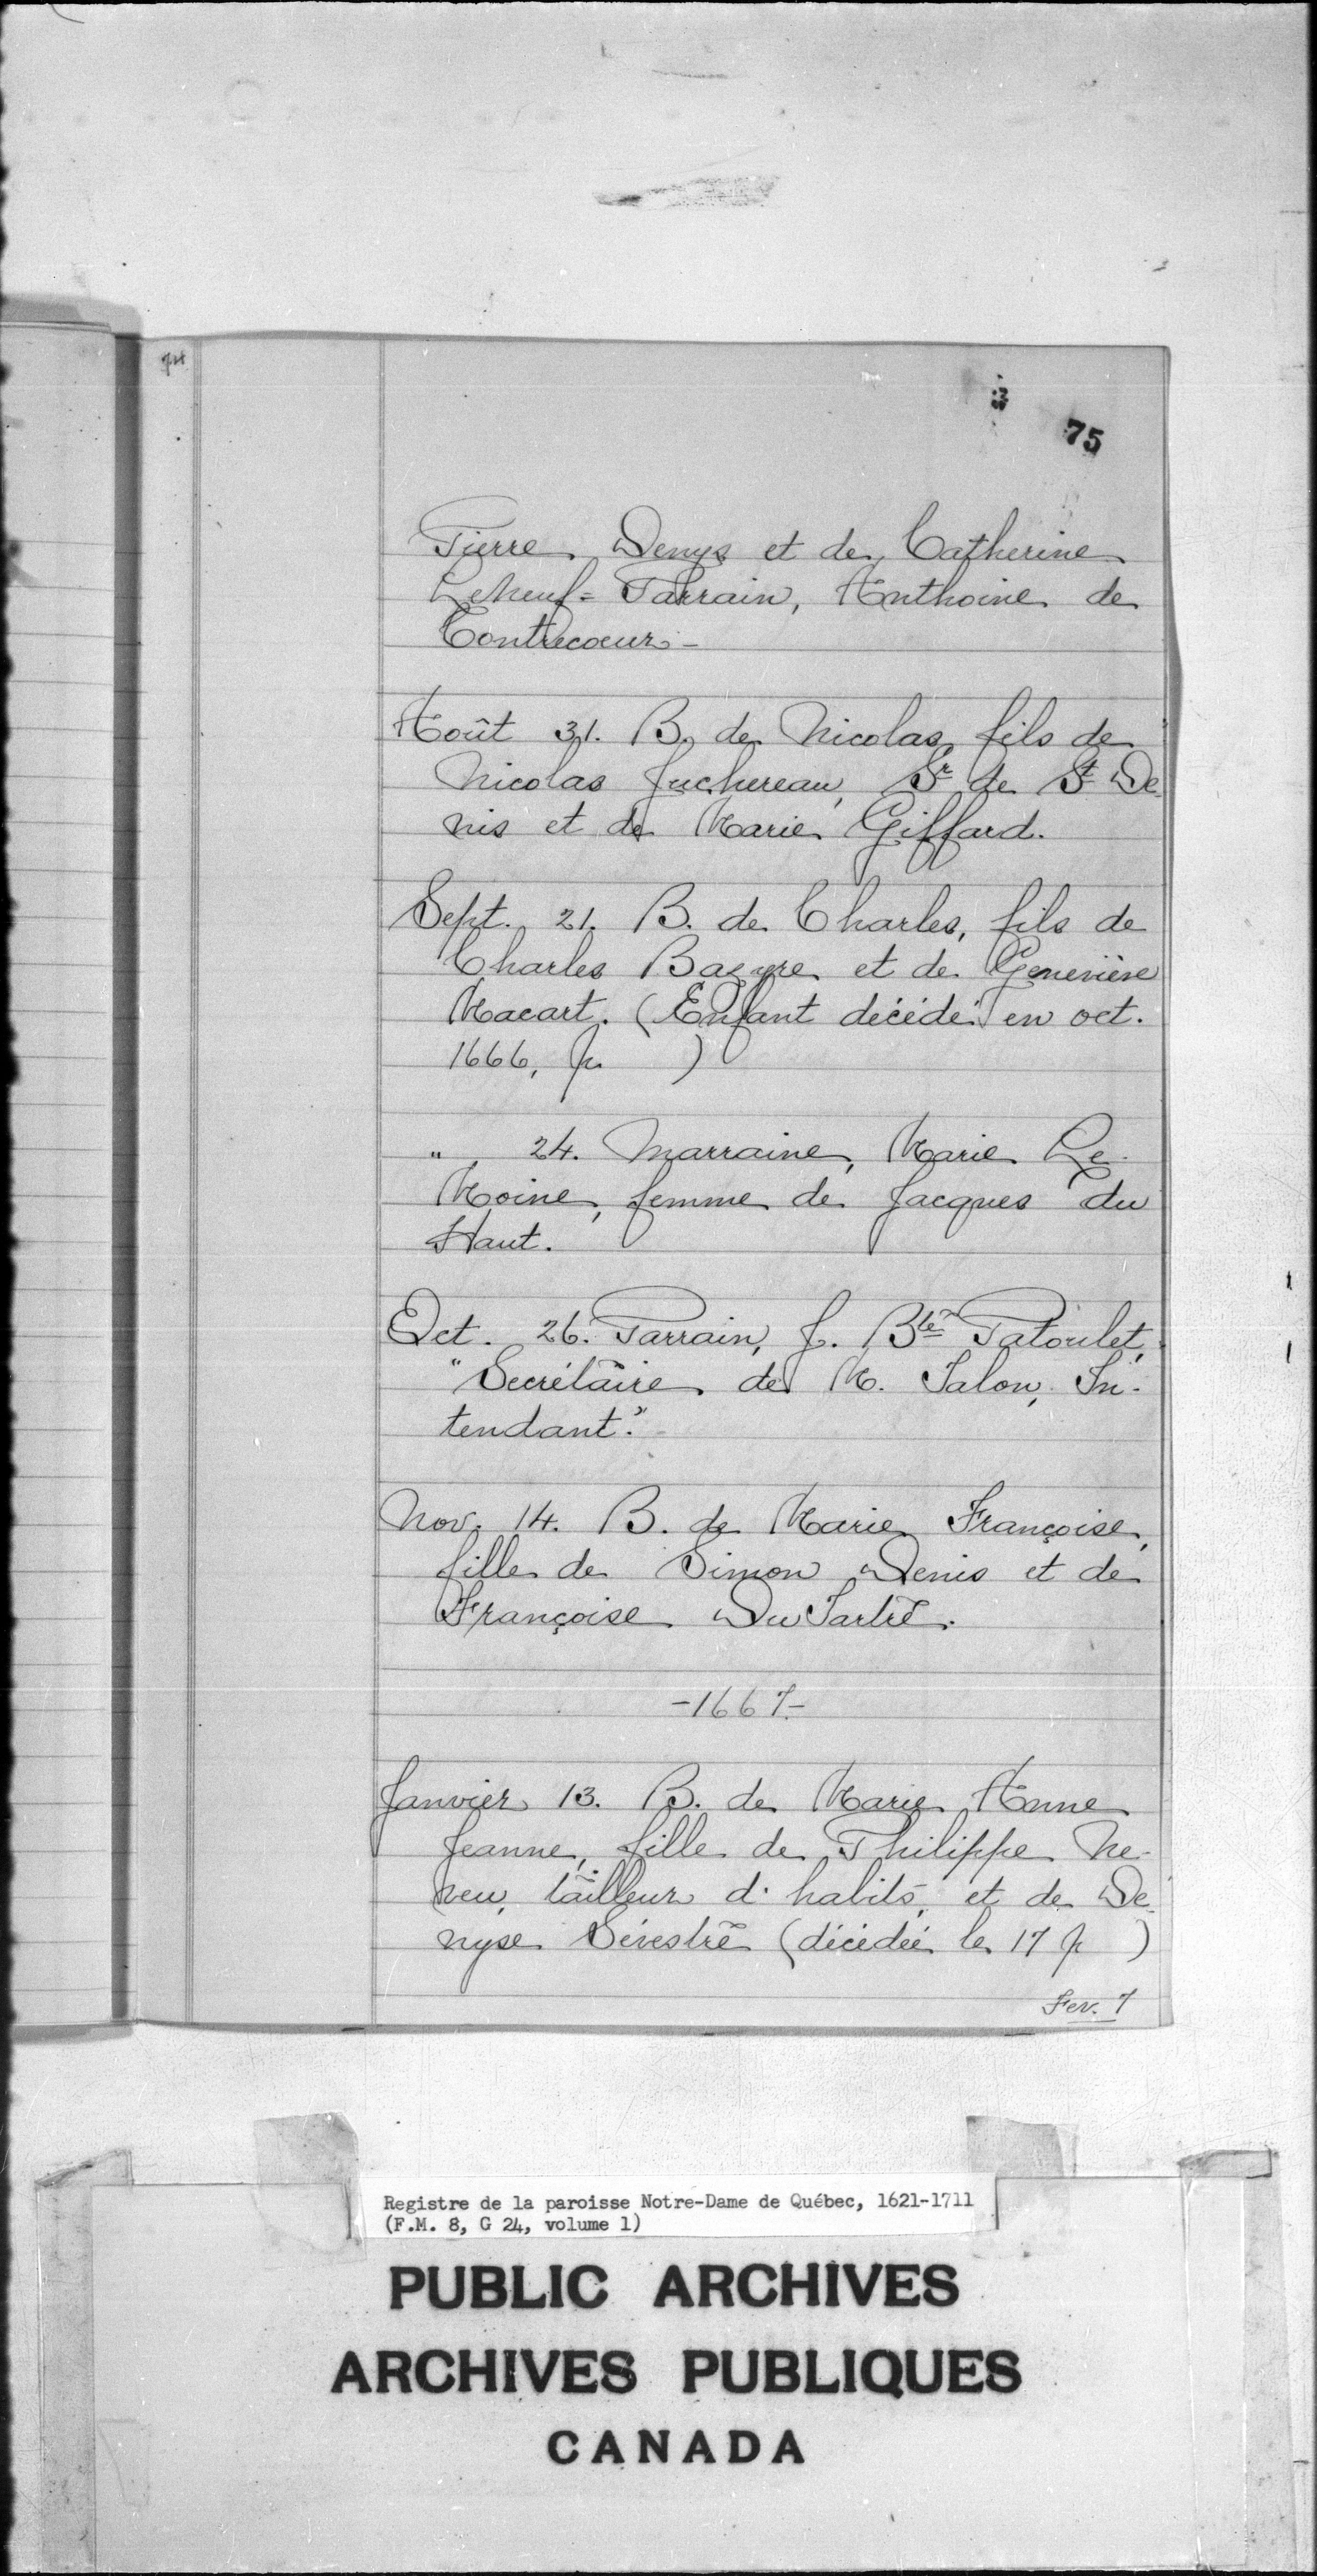 74
75
Pierre Denys et de Catherine
LeNeuf = Parrain, Anthoine de
Contrecoeur -
Août 31. B. de Nicolas fils de
Nicolas Juchereau, Sr de St De-
nis et de Marie Giffard.
Sept. 21. B. de Charles, fils de
Charles Bazyre et de Geneviève
Macart. (Enfant décédé en oct.
1666, p. )
" 24. Marraine, Marie Le-
Moine, femme de Jacques du
Haut.
Oct. 26. Parrain, J. Bte Patoulet,
"Secrétaire de M. Talon, In-
tendant."
Nov. 14. B. de Marie Françoise,
fille de Simon Denis et de
Françoise DuTartre.
-1667-
Janvier 13. B. de Marie Anne
Jeanne, fille de Philippe Ne-
veu, tailleur d'habits, et de De-
nyse Sévestre (décédée le 17 p )
Fev. 7
Registre de la paroisse Notre-Dame de Québec, 1621-1711
(F.M. 8, G 24, volume 1)
PUBLIC ARCHIVES
ARCHIVES PUBLIQUES
CANADA